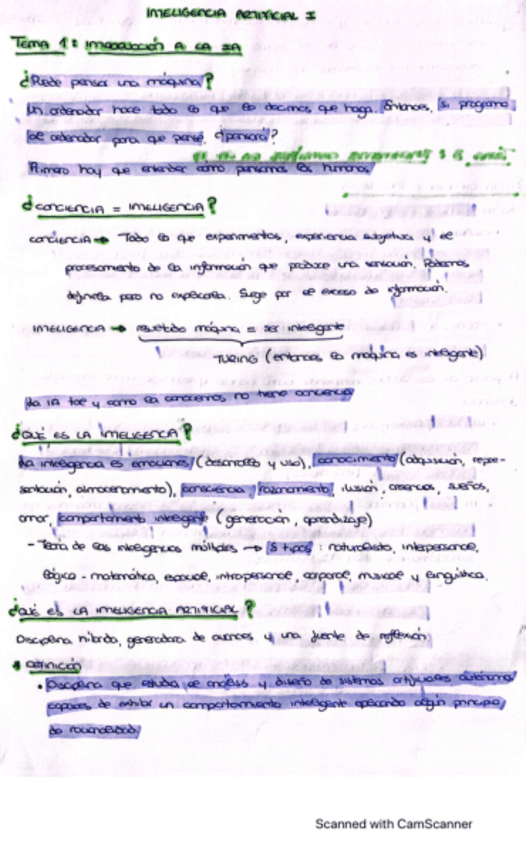 INTELIGENCIA ARTIFICIAL I
TEMA 1: INTRODUCCIÓN A LA IA
¿Puede pensar una máquina?
Un ordenador hace todo lo que le decimos que haga. Entonces, si programo
el ordenador para que piense, ¿pensará?
Primero hay que entender como pensamos los humanos
¿CONCIENCIA = INTELIGENCIA?
CONCIENCIA → Todo lo que experimentas, experiencia subjetiva y el
procesamiento de la información que produce una sensación. Podemos
definirla pero no explicarla. Surge por el exceso de información.
INTELIGENCIA → resultado máquina = ser inteligente
TURING (entonces la máquina es inteligente)
La IA tal y como la conocemos no tiene conciencia
¿QUÉ ES LA INTELIGENCIA?
La inteligencia es emociones (desarrollo y uso), conocimiento (adquisición, repre-
sentación, almacenamiento), consciencia, razonamiento, ilusión, creencias, sueños,
amor, comportamiento inteligente (generación, aprendizaje)
- Teoría de las inteligencias múltiples → 8 tipos: naturalista, interpersonal,
lógica - matemática, espacial, intrapersonal, corporal, musical y lingüística.
¿QUÉ ES LA INTELIGENCIA ARTIFICIAL?
Disciplina híbrida, generadora de avances y una fuente de reflexión
* definición
• Disciplina que estudia el análisis y diseño de sistemas artificiales autónomos
capaces de exhibir un comportamiento inteligente aplicando algún principio
de racionalidad
Scanned with CamScanner